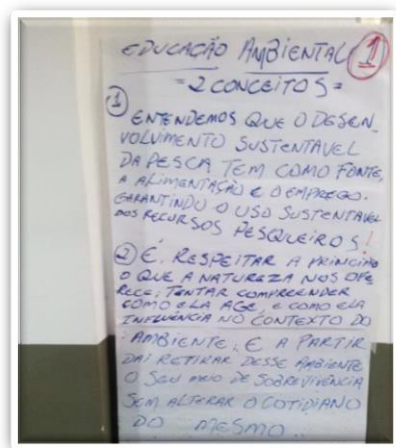 EDUCAÇÃO AMBIENTAL 1
=2 CONCEITOS=
1 ENTENDEMOS QUE O DESEN-
VOLVIMENTO SUSTENTÁVEL
DA PESCA TEM COMO FONTE,
A ALIMENTAÇÃO E O EMPREGO.
GARANTINDO O USO SUSTENTAVEL
DOS RECURSOS PESQUEIROS!
2 É. RESPEITAR A PRINCIPIO
O QUE A NATUREZA NOS OFE
RECE; TENTAR COMPREENDER
COMO ELA AGE, E COMO ELA
INFLUÊNCIA NO CONTEXTO DO
AMBIENTE; E A PARTIR
DAÍ RETIRAR DESSE AMBIENTE
O SEU MEIO DE SOBREVIVÊNCIA
SEM ALTERAR O COTIDIANO
DO MESMO.